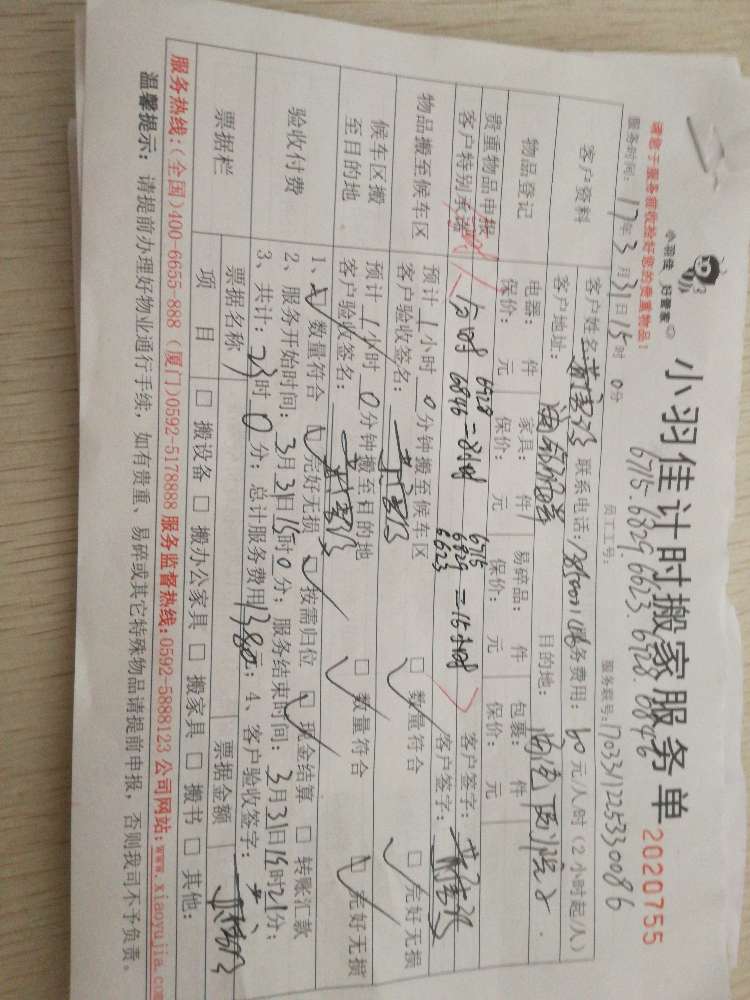 小羽佳 好管家
小羽佳计时搬家服务单
2020755
6715.6829.6623.6728.6846
请您于服务前收检好您的贵重物品！
员工工号：
服务系号：
服务时间：17年3月31日15时0分
客户资料
客户姓名 联系电话： 服务费用：60元/人时（2小时起/人）
客户地址： 目的地：
物品登记
电器： 件 家具： 件 易碎品： 件 包裹： 件
保价： 元 保价： 元 保价： 元 保价： 元
贵重物品申报 客户签字：
客户特别承诺 客户签字：
6728
6846 = 8小时
6715
6829 = 16小时
6623
物品搬至候车区
预计1小时0分钟搬至候车区 □ 数量符合 □ 完好无损
客户验收签名：
候车区搬至目的地
预计1小时0分钟搬至目的地 □ 数量符合 □ 完好无损
客户验收签名：
验收付费
1、□ 数量符合 □ 完好无损 □ 按需归位 □ 现金结算 □ 转账汇款
2、服务开始时间：3月31日15时0分；服务结束时间：3月31日19时21分；
3、共计：23时0分；总计服务费用1380元；4、客户验收签字：
票据栏
票据名称 票据金额
项 目 □ 搬设备 □ 搬办公家具 □ 搬家具 □ 搬书 □ 其他：
服务热线：（全国）400-6655-888（厦门）0592-5178888 服务监督热线：0592-5888123 公司网站：www.xiaoyujia.com
温馨提示：请提前办理好物业通行手续，如有贵重、易碎或其它特殊物品请提前申报，否则我司不予负责。